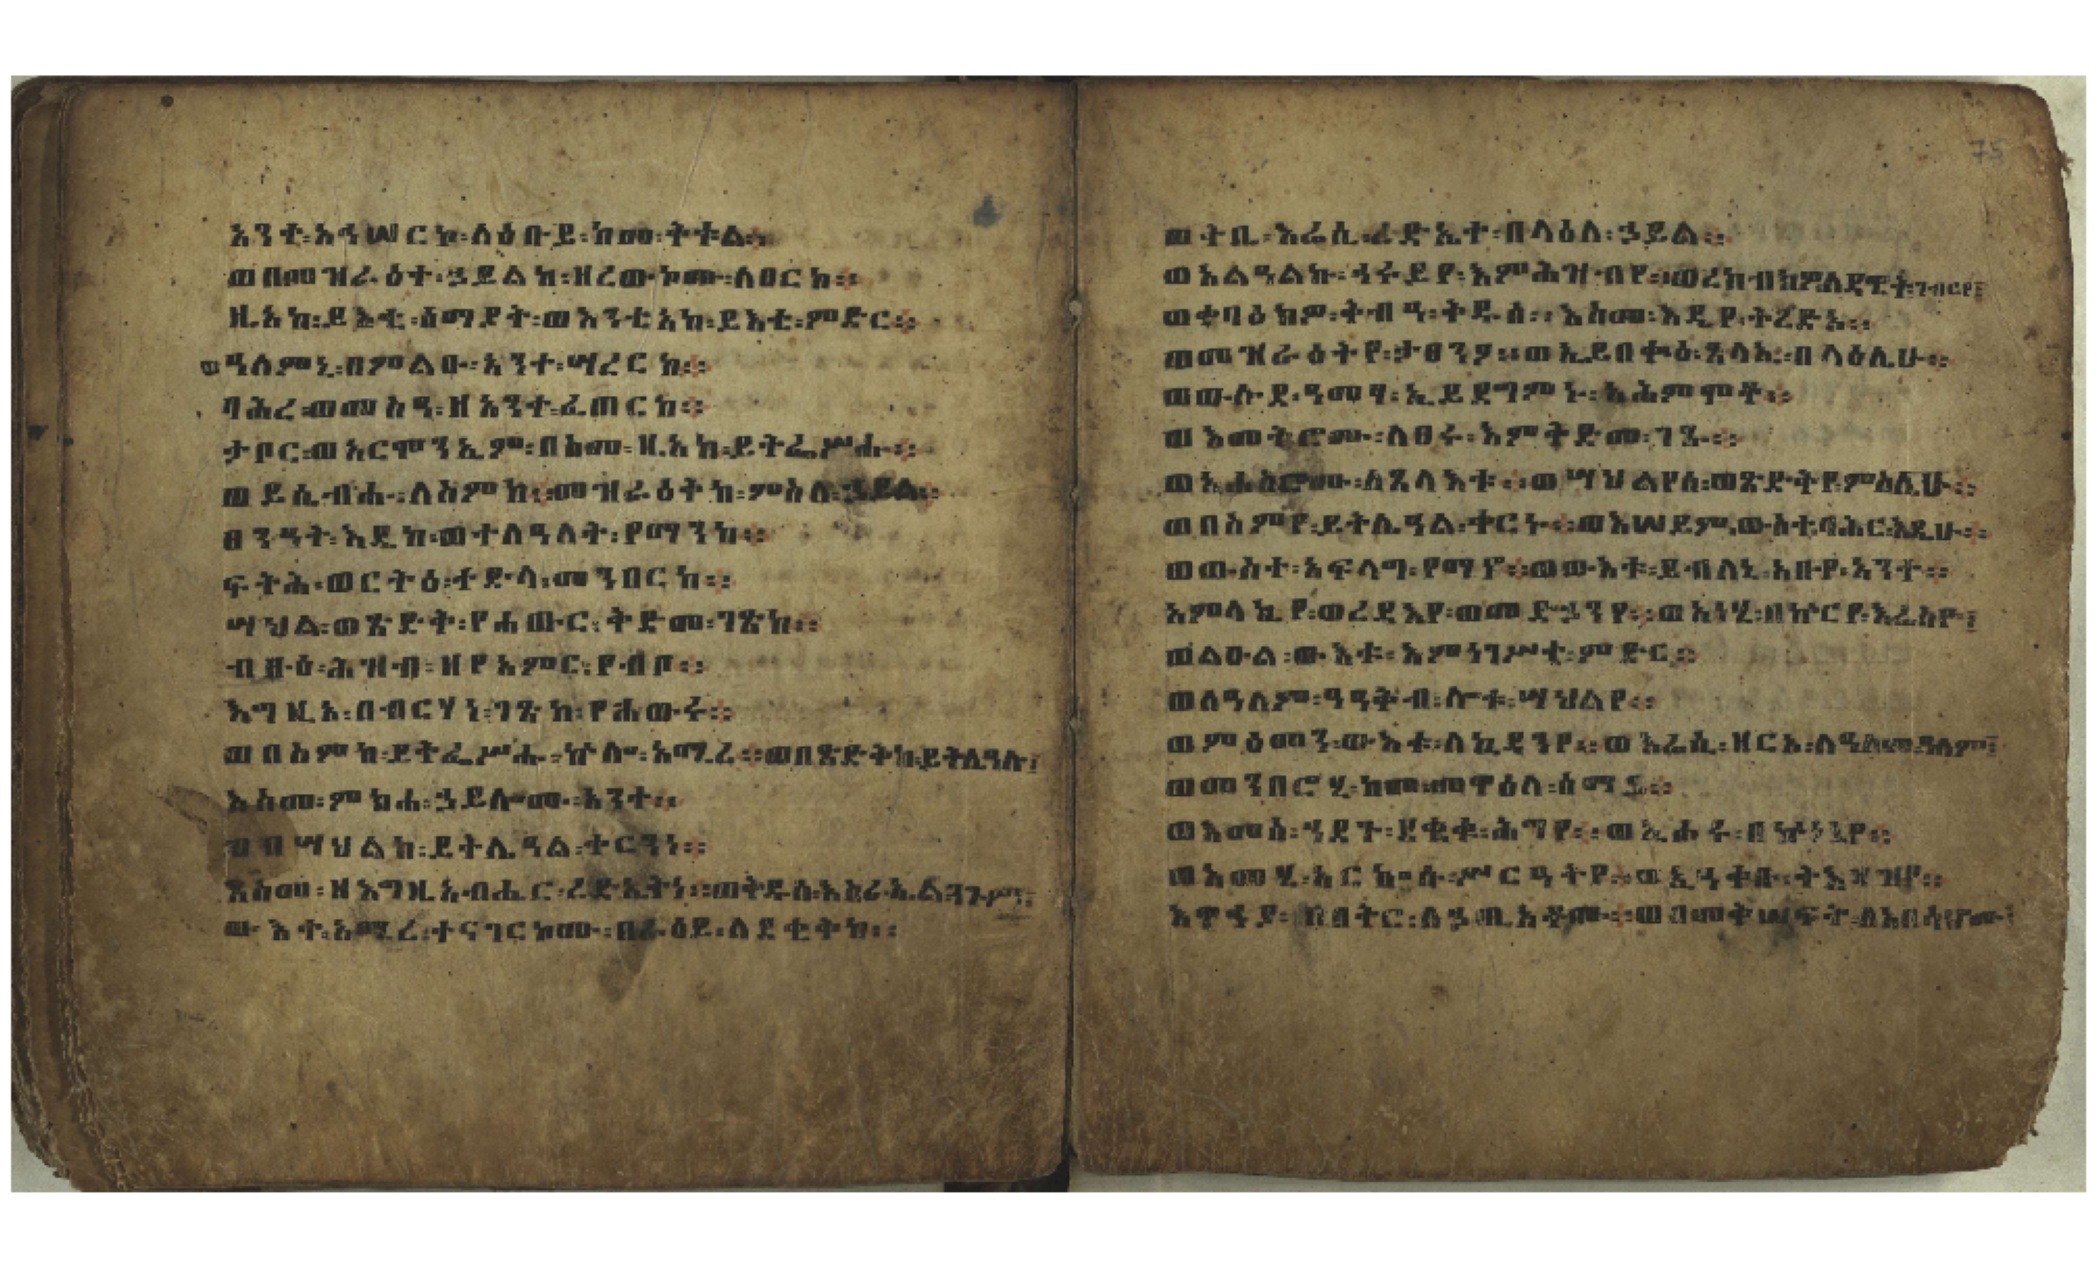 አንተ፡አኅሠርኮ፡ለዕቡይ፡ከመ፡ቅቱል።
ወበመዝራዕተ፡ኃይልከ፡ዘረውኮሙ፡ለፀርከ።
ዚአከ፡ይእቲ፡ሰማያት፡ወእንቲአከ፡ይእቲ፡ምድር።
ወዓለምኒ፡በምልዑ፡አንተ፡ሣረርከ።
ባሕረ፡ወመስዓ፡ዘአንተ፡ፈጠርከ።
ታቦር፡ወአርሞንኤም፡በስመ፡ዚአከ፡ይትፌሥሑ።
ወይሴብሑ፡ለስምከ።መዝራዕትከ፡ምስለ፡ኃይል።
ፀንዓት፡እዴከ፡ወተለዓለት፡የማንከ።
ፍትሕ፡ወርትዕ፡ተድላ፡መንበርከ።
ሣህል፡ወጽድቅ፡የሐውር፡ቅድመ፡ገጽከ።
ብፁዕ፡ሕዝብ፡ዘየአምር፡የብቦ።
እግዚኦ፡በብርሃነ፡ገጽከ፡የሐውሩ።
ወበስምከ፡ይትፌሥሑ፡ኵሎ፡አሚረ።ወበጽድቅከ፡ይትሌዓሉ፤
እስመ፡ምክሐ፡ኃይሎሙ፡አንተ።
ወበሣህልከ፡ይትሌዓል፡ቀርንነ።
እስመ፡ዘእግዚአብሔር፡ረድኤትነ።ወቅዱሰ፡እስራኤል፡ንጉሥነ፤
ውእተ፡አሚረ፡ተናገርኮሙ፡በራዕይ፡ለደቂቅከ።
ወትቤ፡እሬሲ፡ረድኤተ፡በላዕለ፡ኃይል።
ወአልዓልኩ፡ኅሩይየ፡እምሕዝብየ።ወረከብክዎ፡ለዳዊት፡ገብርየ፤
ወቀባዕክዎ፡ቅብዓ፡ቅዱሰ።እስመ፡እዴየ፡ትረድኦ።
ወመዝራዕትየ፡ታፀንዖ።ወኢይበቍዕ፡ጸላኢ፡በላዕሌሁ።
ወውሉደ፡ዓመፃ፡ኢይደግምኑ፡አሕምሞቶ።
ወእመትሮሙ፡ለፀሩ፡እምቅድመ፡ገጹ።
ወኣሐስሮሙ፡ለጸላእቱ።ወሣህልየሰ፡ወጽድቅየ፡ምስሌሁ።
ወበስምየ፡ይትሌዓል፡ቀርኑ።ወእሠይም፡ውስተ፡ባሕር፡እዴሁ።
ወውስተ፡አፍላግ፡የማኖ።ወውእቱ፡ይብለኒ፡አቡየ፡አንተ።
አምላኪየ፡ወረዳእየ፡ወመድኃንየ።ወአነሂ፡በኵርየ፡እሬስዮ፤
ወልዑል፡ውእቱ፡እምነገሥተ፡ምድር።
ወለዓለም፡ዓዓቅብ፡ሎቱ፡ሣህልየ።
ወምዕመን፡ውእቱ፡ለኪዳንየ።ወእሬሲ፡ዘርኦ፡ለዓለመ፡ዓለም፤
ወመንበሮሂ፡ከመ፡መዋዕለ፡ሰማይ።
ወእመሰ፡ኀደጉ፡ደቂቁ፡ሕግየ።ወኢሖሩ፡በኵነኔየ።
ወእመሂ፡አርኰሱ፡ሥርዓትየ።ወኢዓቀቡ፡ትእዛዝየ።
እዋኅያ፡በበትር፡ለኃጢአቶሙ።ወበመቅሠፍት፡ለአበሳሆሙ፤